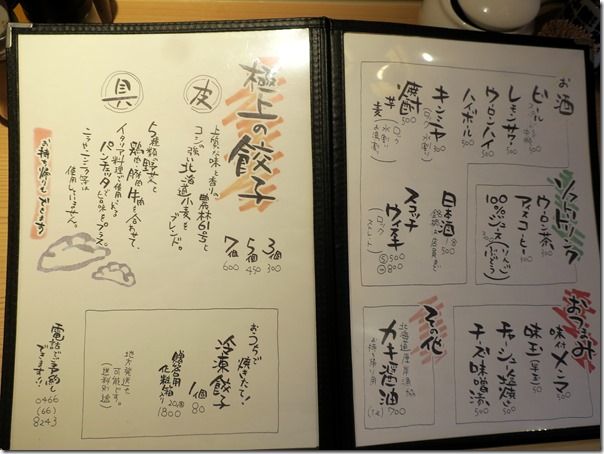 極上の餃子
皮
上質な味と香りの
農林61号と
コシの強い北海道小麦を
ブレンド。
3個 300
5個 450
7個 600
具
5種類の野菜と
鶏肉、豚肉、牛肉を合わせて、
イタリア料理で使用される
パンチェッタで旨味をプラス。
ニラ、ニンニク等は
使用していません。
お持ち帰りもできます
おうちで
焼きたて!
冷凍餃子
1個 80
贈答用
化粧箱入り
20個 1800
地方発送も
可能です。
(送料別途)
電話でご予約も
できます!!
0466
(66)
8243
お酒
ビール
レモンサワー 50
ウーロンハイ 50
ハイボール 50
キンミヤ
焼酎
麦
日本酒
スコッチ
ウイスキー
Ⓢ 500
Ⓓ 800
ソフトドリンク
ウーロン茶
アイスコーヒー
100%ジュース
おつまみ
味付メンマ
味玉(半玉)
チャーシュー塩焼き
チーズ味噌漬
その他
北海道厚岸漁協
カキ醤油
お持ち帰り用
700